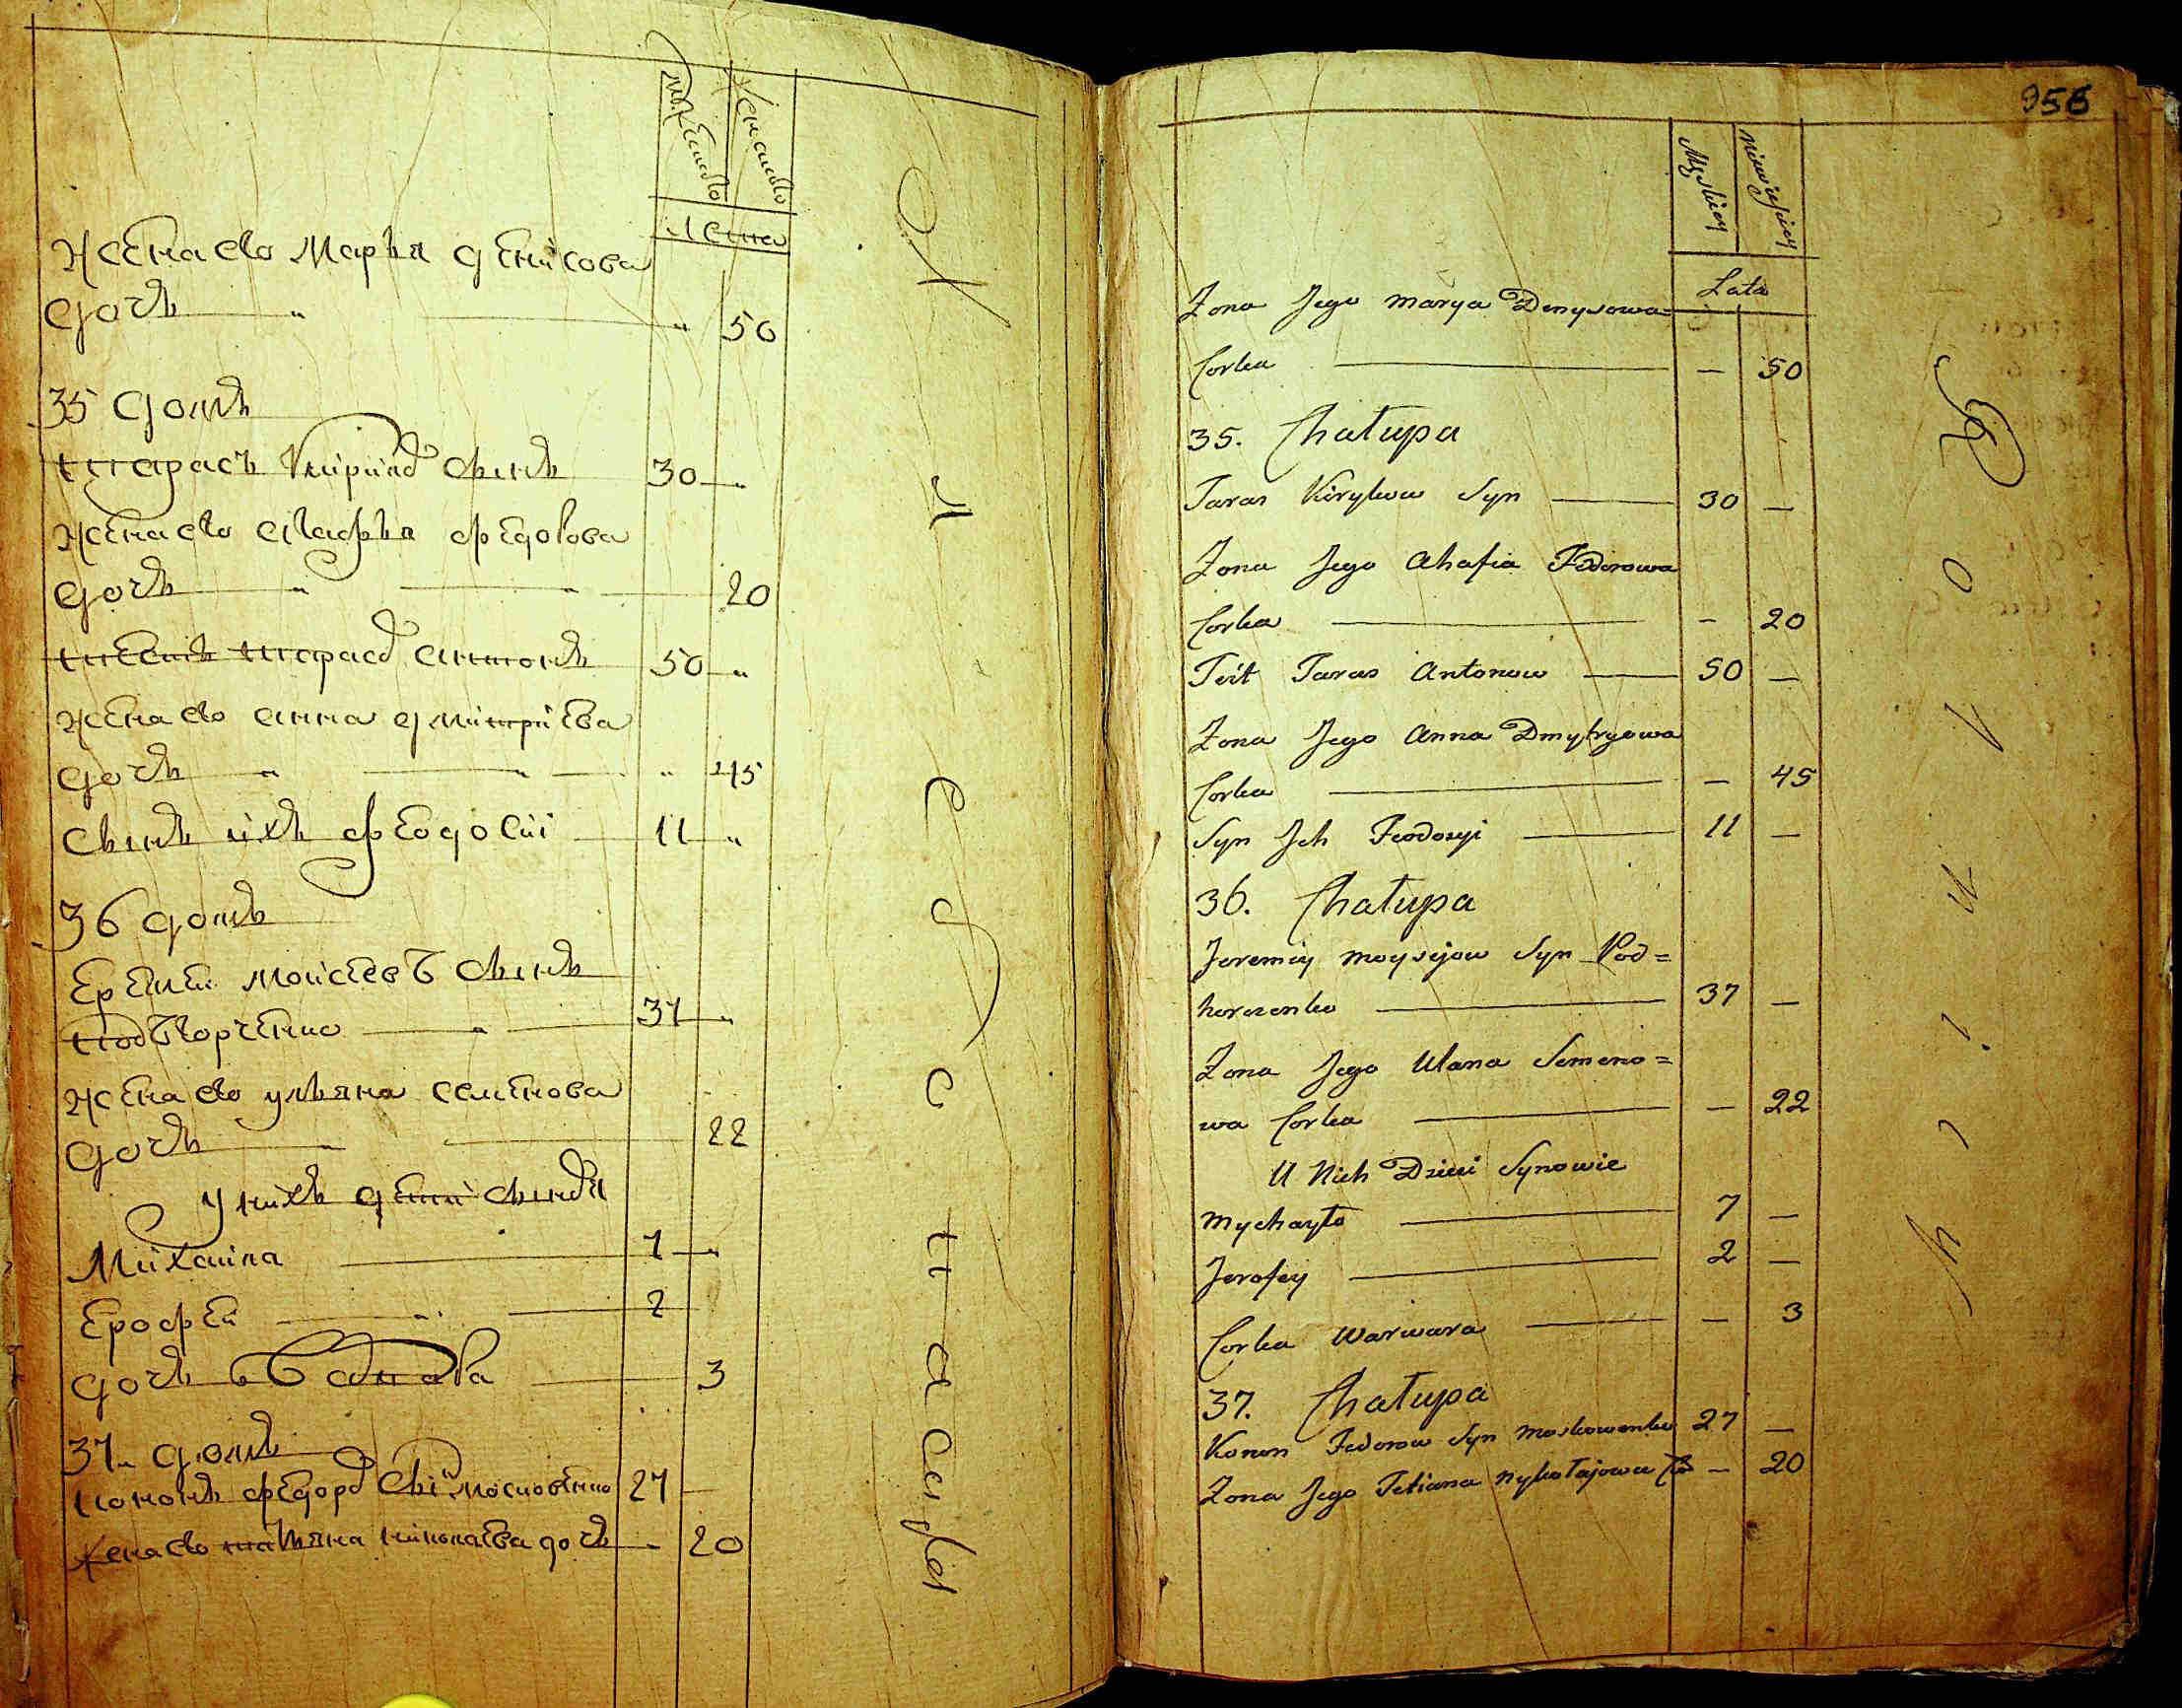 Мужеска
Женска
Лета
Жена его Марья Денисова
дочь " " 50
35 домъ
Тарасъ Кирилов сынъ 30 "
Жена его Агафья Федорова
дочь " 20
тесть Тарас Антонов 50 "
Жена его Анна Дмитриева
дочь " " " 45
сынъ ихъ Феодосий 11 "
36 домъ
Еремей Моисеевъ сынъ
Подгорченко " 37 "
Жена его Ульяна Семенова
дочь 22
у нихъ дети сыновя
Михаила 7 "
Ерофей " 2
дочь Варвара 3
37 домъ
Кононъ Федоров сы Московенко 27 —
Жена его Татьяна Николаева дочь — 20
956
Męskiey
Niewieściey
Lata
Żona Jego Marya Denysowa
Corka — 50
35. Chałupa
Taras Kirykow Syn 30 —
Żona Jego Ahafia Fedorowa
Corka — 20
Teść Taras Antonow 50 —
Żona Jego Anna Dmytryowa
Corka — 45
Syn Jch Feodosyi 11 —
36. Chałupa
Jeremiy Moysejow Syn Pod=
horczenko 37 —
Żona Jego Ulana Semeno=
wa Corka — 22
U Nich Dzieci Synowie
Mychayło 7 —
Jerofey 2 —
Corka Warwara — 3
37. Chałupa
Konon Fedorow Syn Moskowenko 27 —
Żona Jego Tetiana Nykołajowa Co — 20